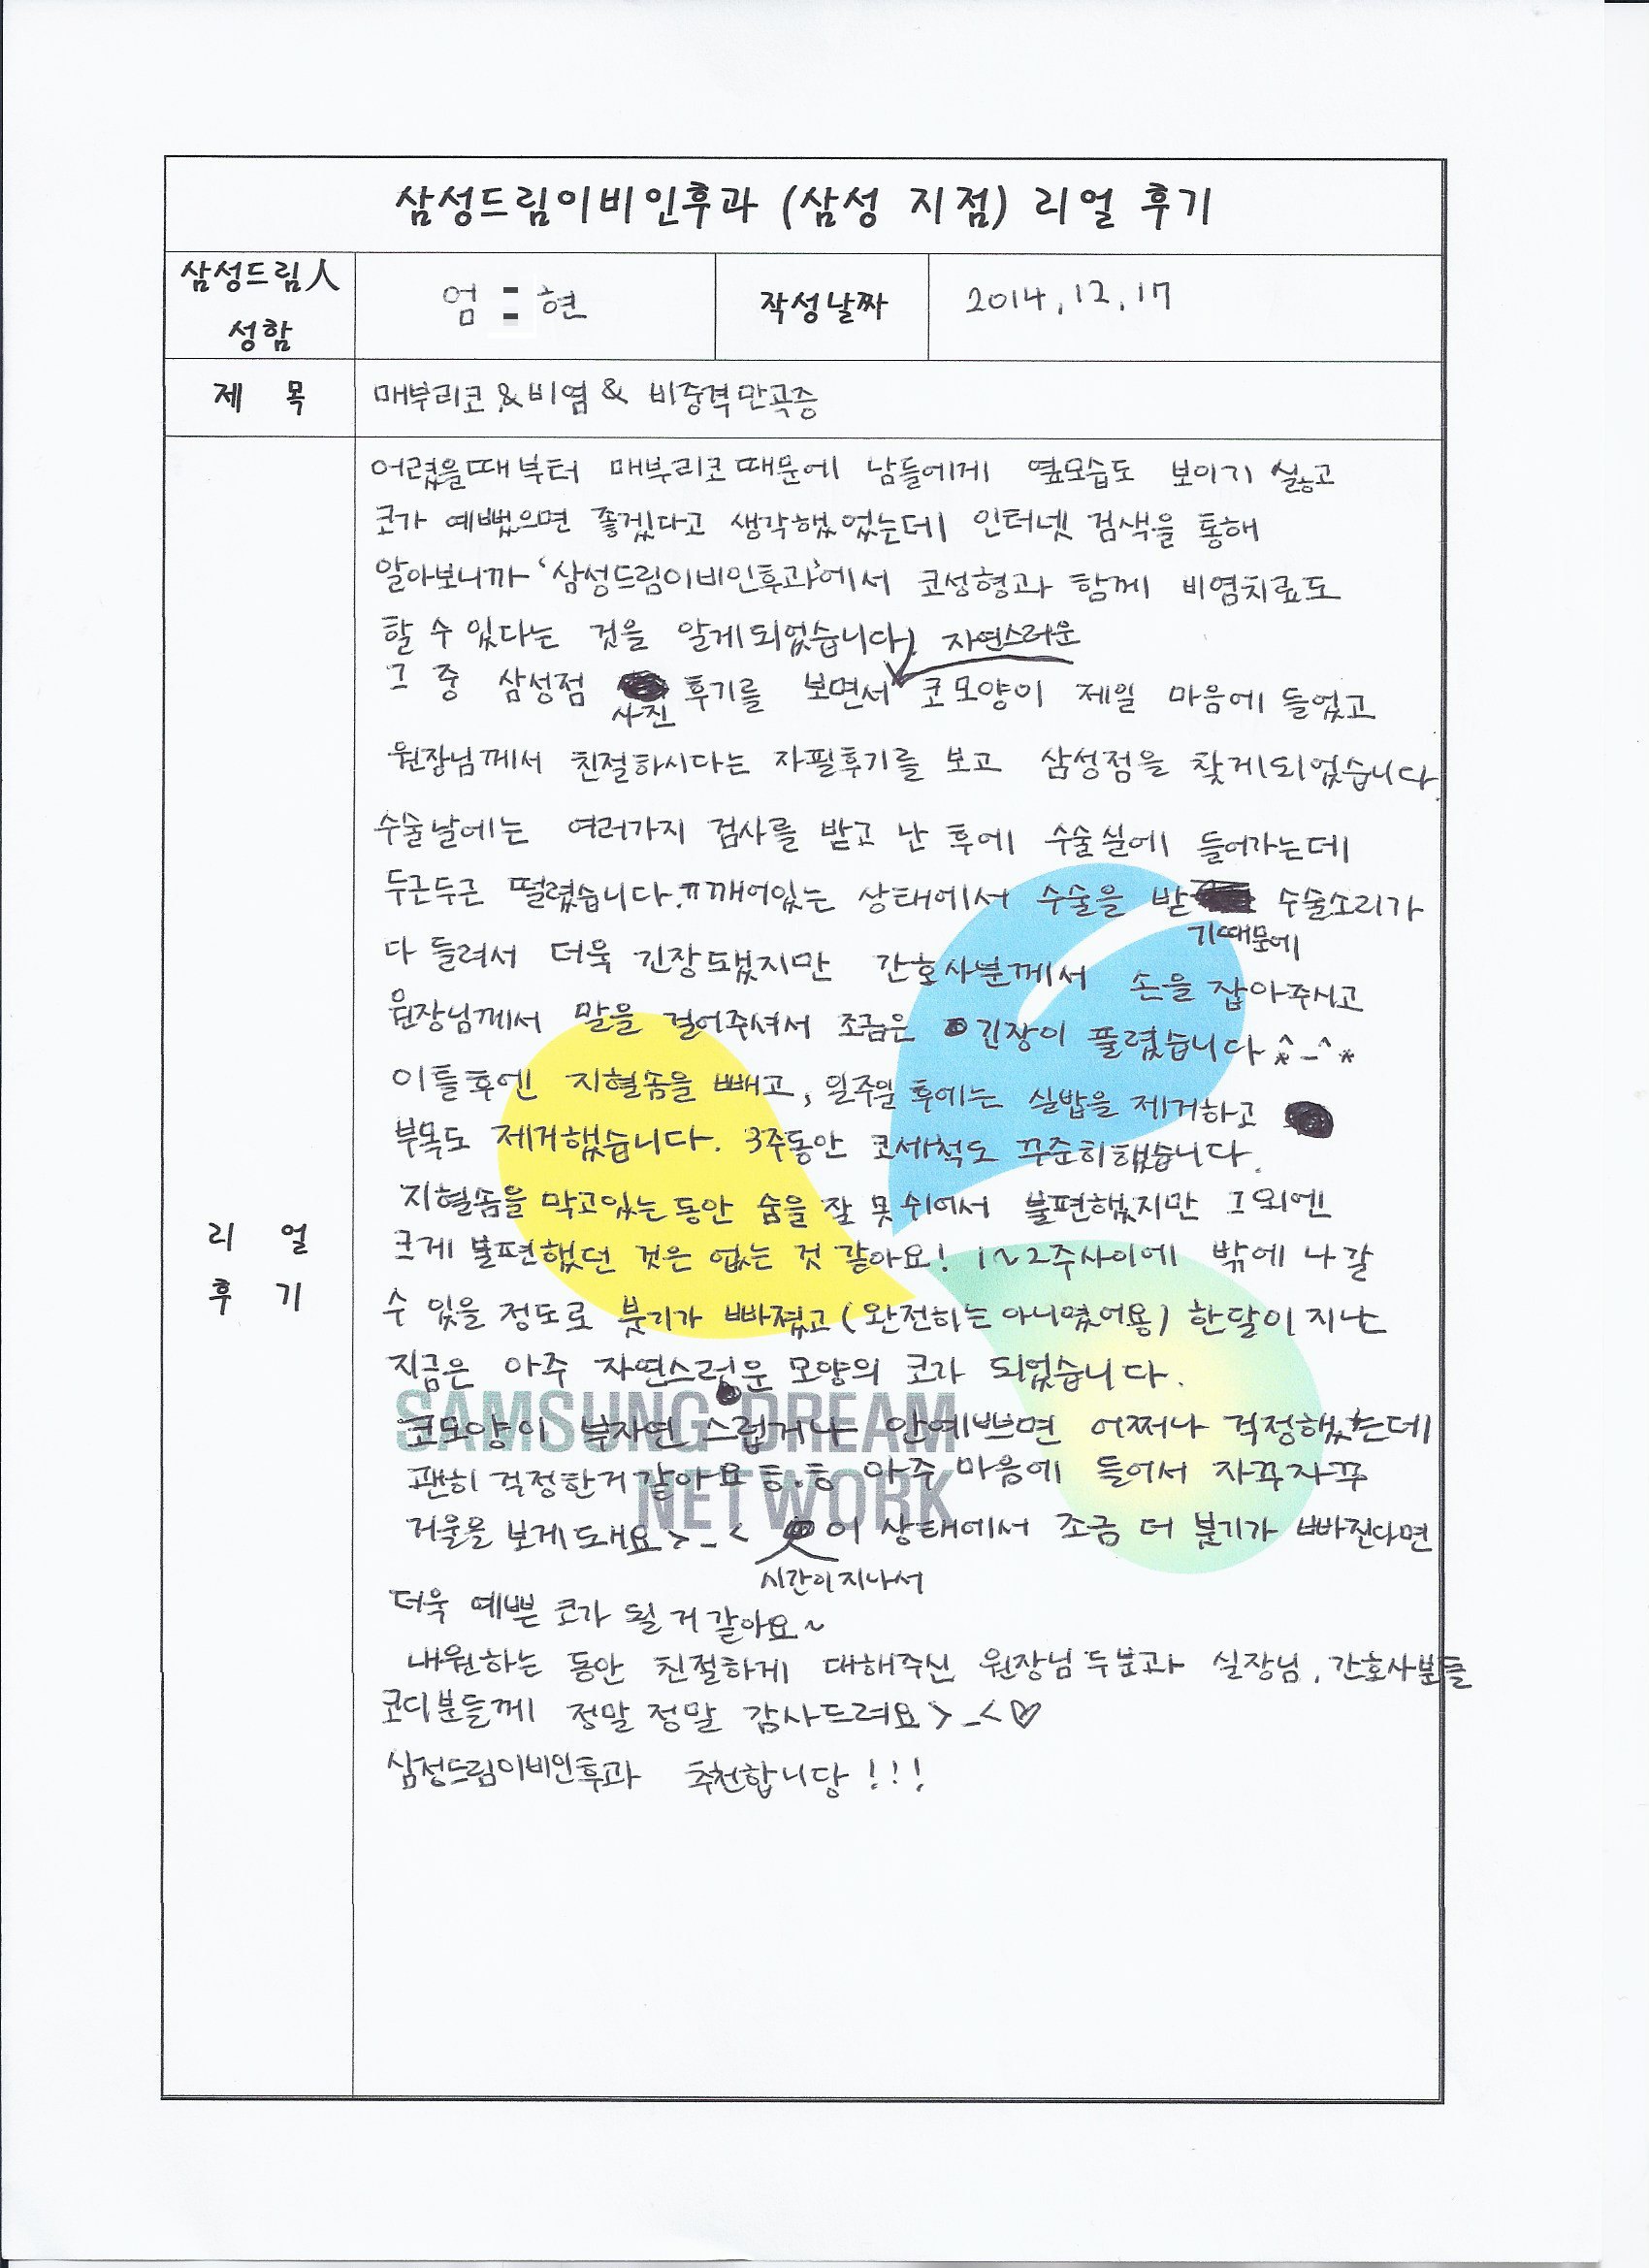 삼성드림이비인후과 (삼성 지점) 리얼 후기
삼성드림人
성함
엄 현
작성날짜
2014. 12. 17
제 목
매부리코 & 비염 & 비중격만곡증
리 얼
후 기
어렸을때부터 매부리코때문에 남들에게 옆모습도 보이기 싫고
코가 예뻤으면 좋겠다고 생각했었는데 인터넷 검색을 통해
알아보니까 '삼성드림이비인후과'에서 코성형과 함께 비염치료도
할 수 있다는 것을 알게되었습니다!
자연스러운
그 중 삼성점 후기를 보면서 코모양이 제일 마음에 들었고
사진
원장님께서 친절하시다는 자필후기를 보고 삼성점을 찾게되었습니다.
수술날에는 여러가지 검사를 받고 난 후에 수술실에 들어가는데
두근두근 떨렸습니다.ㅠ깨어있는 상태에서 수술을 받 수술소리가
기때문에
다 들려서 더욱 긴장됐지만 간호사분께서 손을 잡아주시고
원장님께서 말을 걸어주셔서 조금은 긴장이 풀렸습니다 *^_^*
이틀후엔 지혈솜을 빼고, 일주일 후에는 실밥을 제거하고
부목도 제거했습니다. 3주동안 코세척도 꾸준히했습니다.
지혈솜을 막고있는 동안 숨을 잘 못 쉬어서 불편했지만 그외엔
크게 불편했던 것은 없는 것 같아요! 1~2주사이에 밖에 나갈
수 있을 정도로 붓기가 빠졌고 (완전하는 아니였어용) 한달이 지난
지금은 아주 자연스러운 모양의 코가 되었습니다.
코모양이 부자연스럽거나 안예쁘면 어쩌나 걱정했는데
괜히 걱정한거 같아요 ㅎ.ㅎ 아주 마음에 들어서 자꾸자꾸
거울을 보게돼요 >_< 이 상태에서 조금 더 붓기가 빠진다면
시간이지나서
더욱 예쁜 코가 될거 같아요~
내원하는 동안 친절하게 대해주신 원장님 두분과 실장님, 간호사분들
코디분들께 정말 정말 감사드려요 >_<♡
삼성드림이비인후과 추천합니당!!!
SAMSUNG DREAM
NETWORK